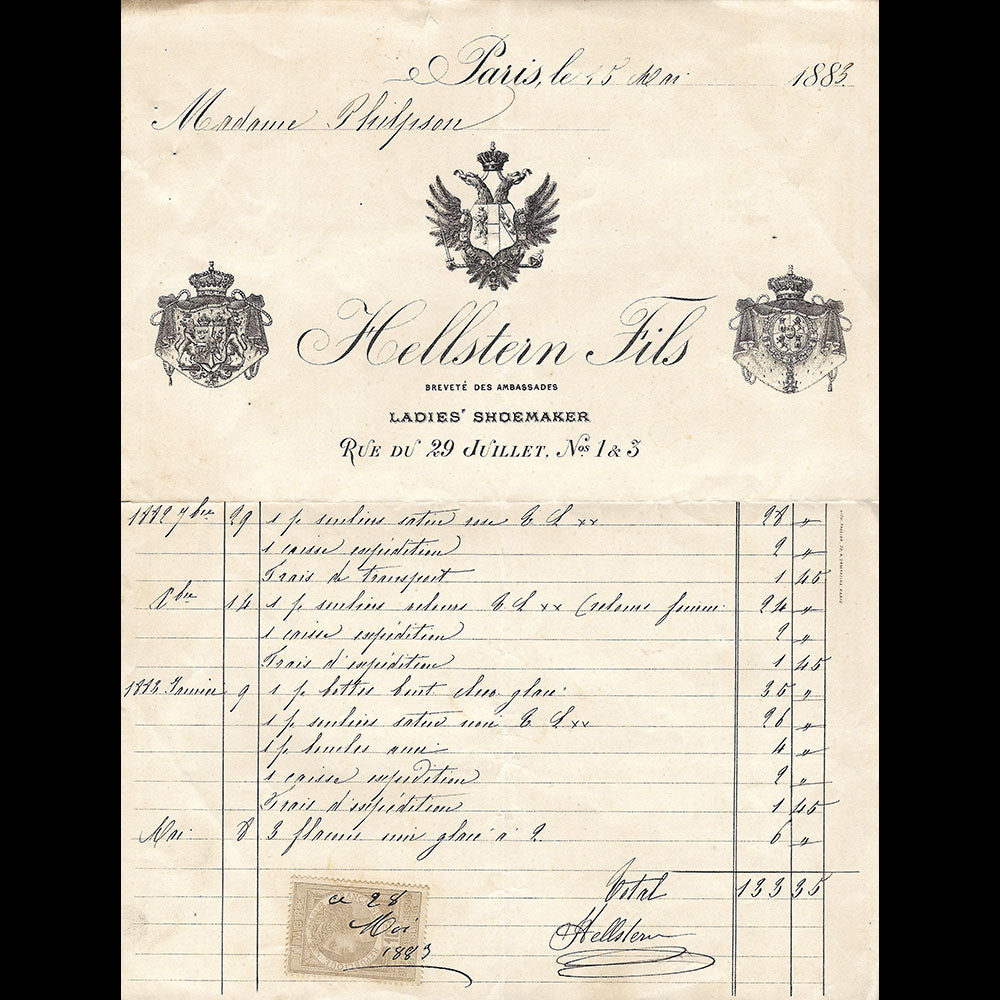 Paris, le 15 Mai 1883
Madame Philpson
Hellstern Fils
BREVETÉ DES AMBASSADES
LADIES' SHOEMAKER
RUE DU 29 JUILLET, Nos 1 & 3
1882 7bre 29 1 p. souliers satin rose 28 "
1 caisse expédition 2 "
Frais de transport 1 45
8bre 14 1 p. souliers velours (velours fourni 24 "
1 caisse expédition 2 "
Frais d'expédition 1 45
1883 Janvier 9 1 p. bottes bout chev. glacé 35 "
1 p. souliers satin noir 26 "
1 p. boucles 4 "
1 caisse expédition 2 "
Frais d'expédition 1 45
Mai 8 3 flacons noir glacé à 2 6 "
Total 133 35
ce 28
Mai
1883
Hellstern